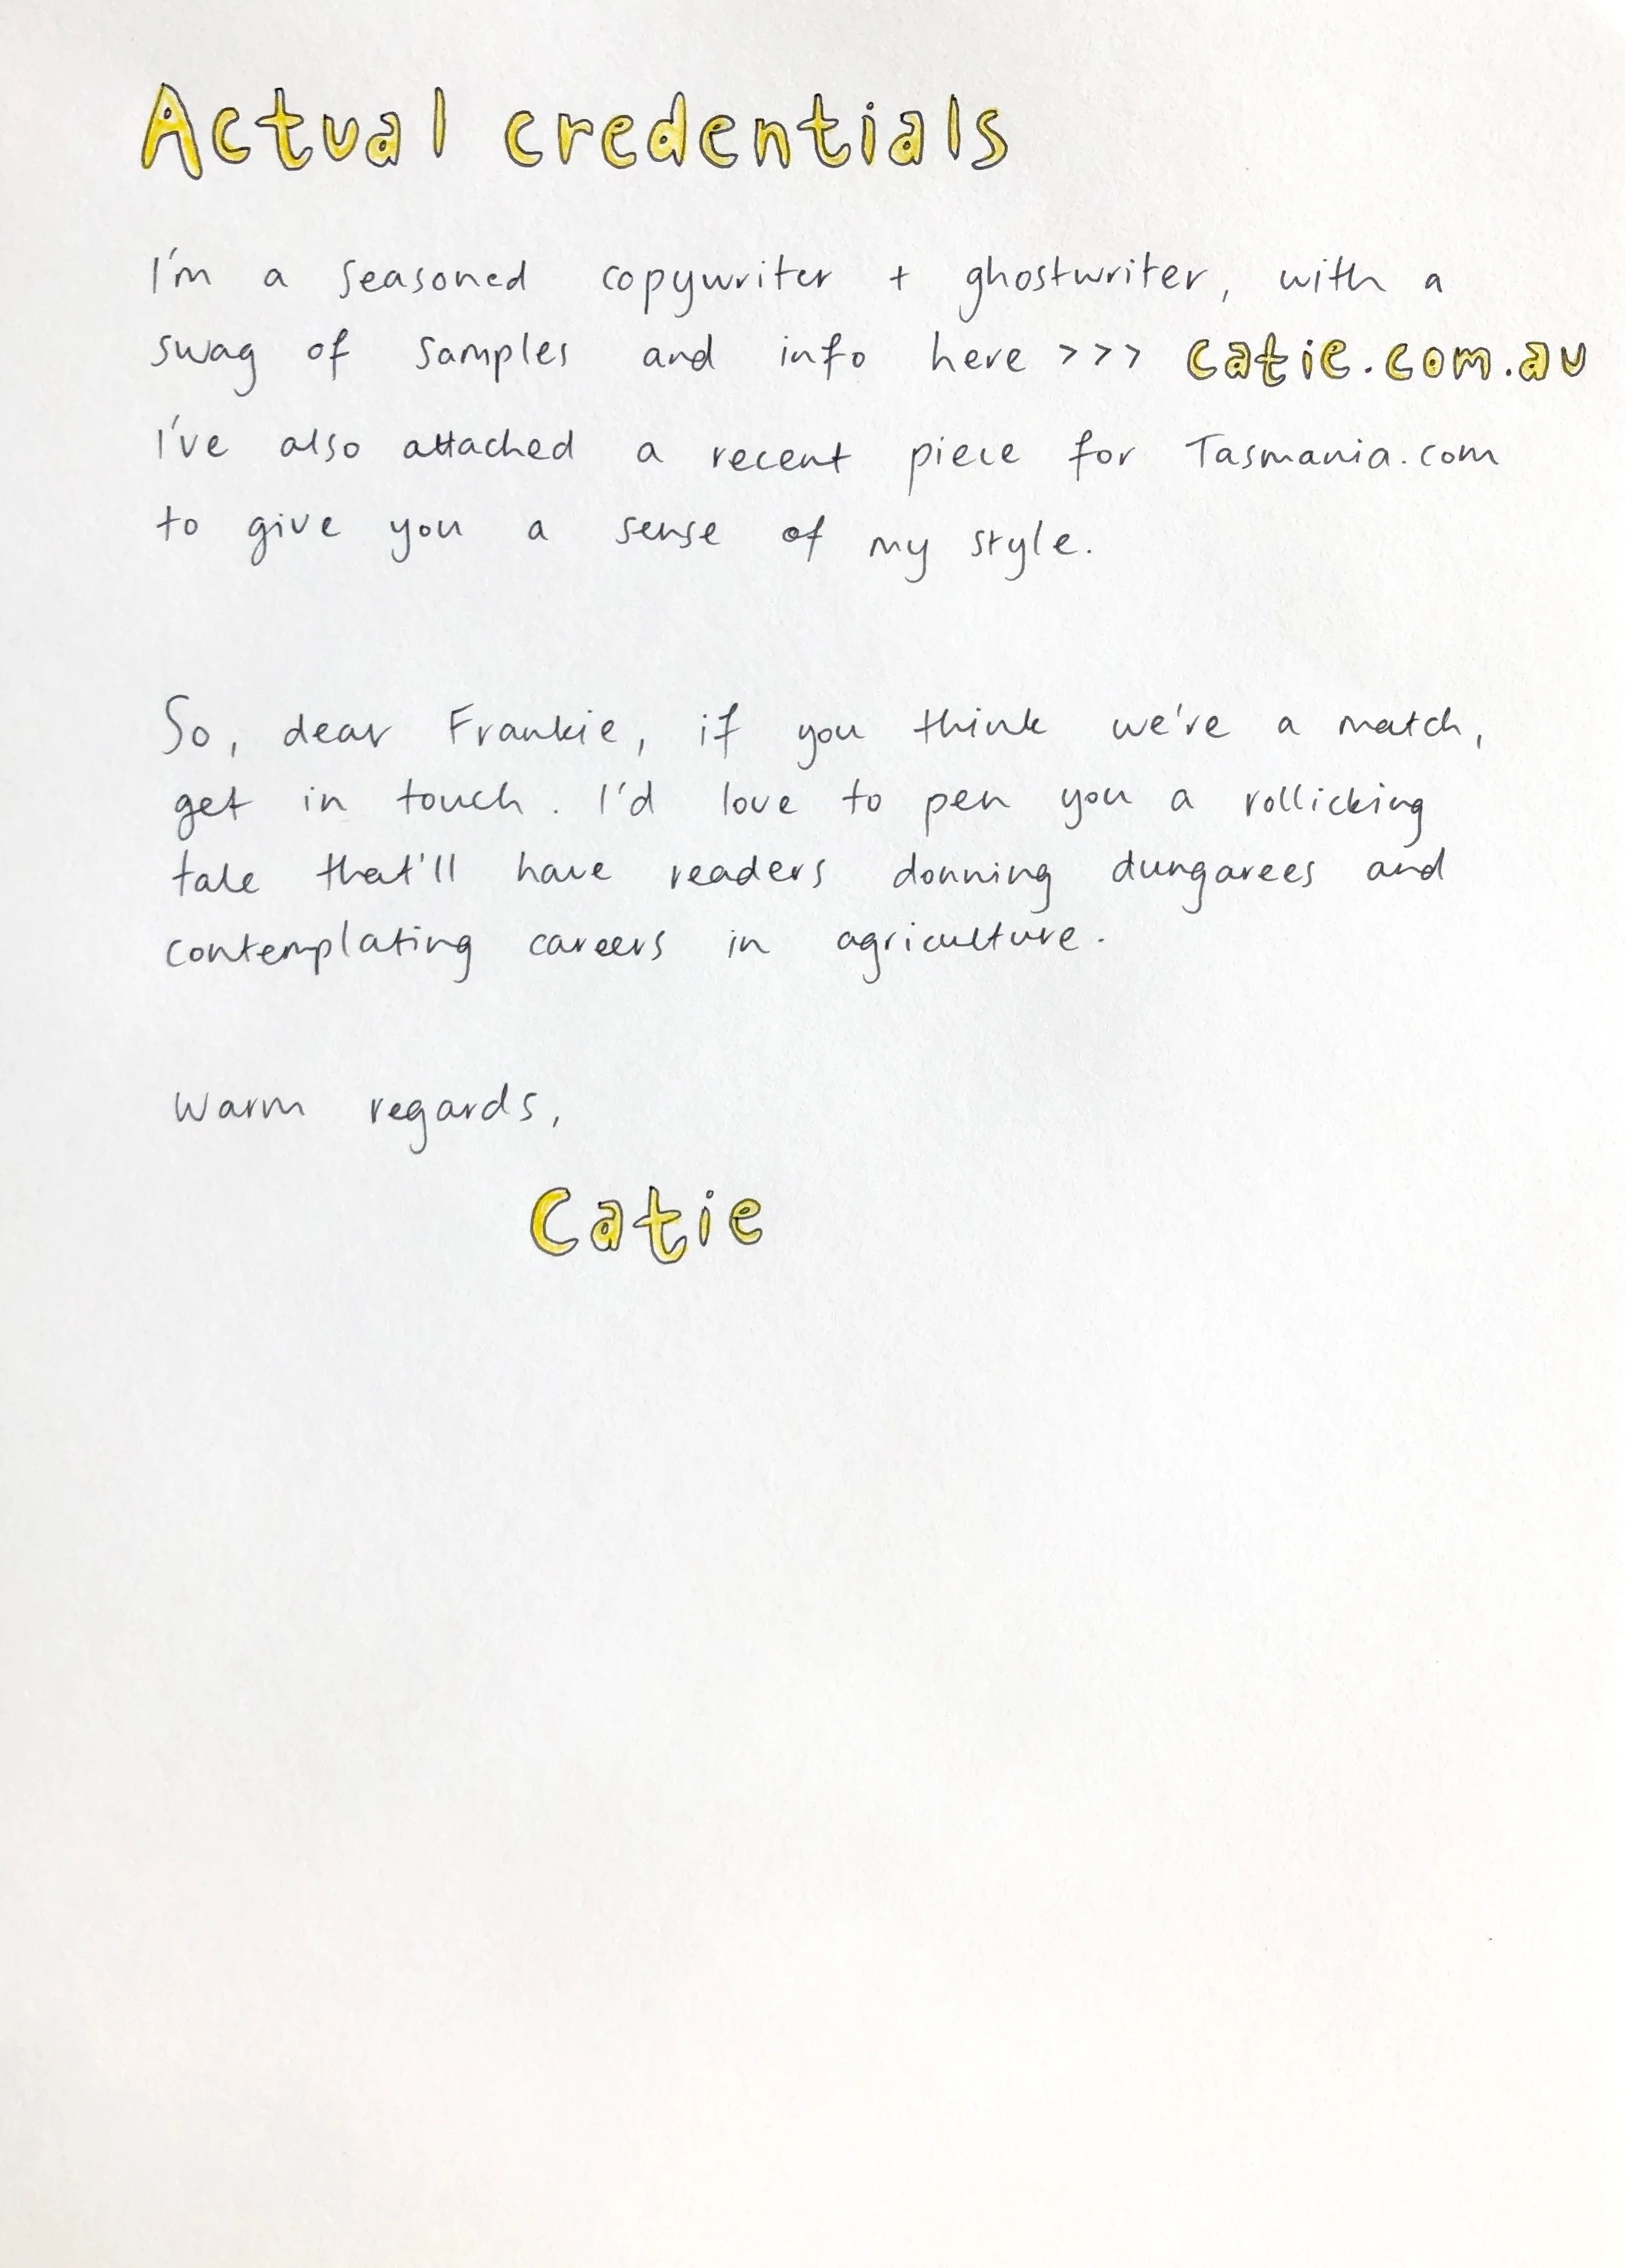 Actual credentials
I'm a seasoned copywriter + ghostwriter, with a
swag of samples and info here >>> catie.com.au
I've also attached a recent piece for Tasmania.com
to give you a sense of my style.
So, dear Frankie, if you think we're a match,
get in touch. I'd love to pen you a rollicking
tale that'll have readers donning dungarees and
contemplating careers in agriculture.
Warm regards,
Catie